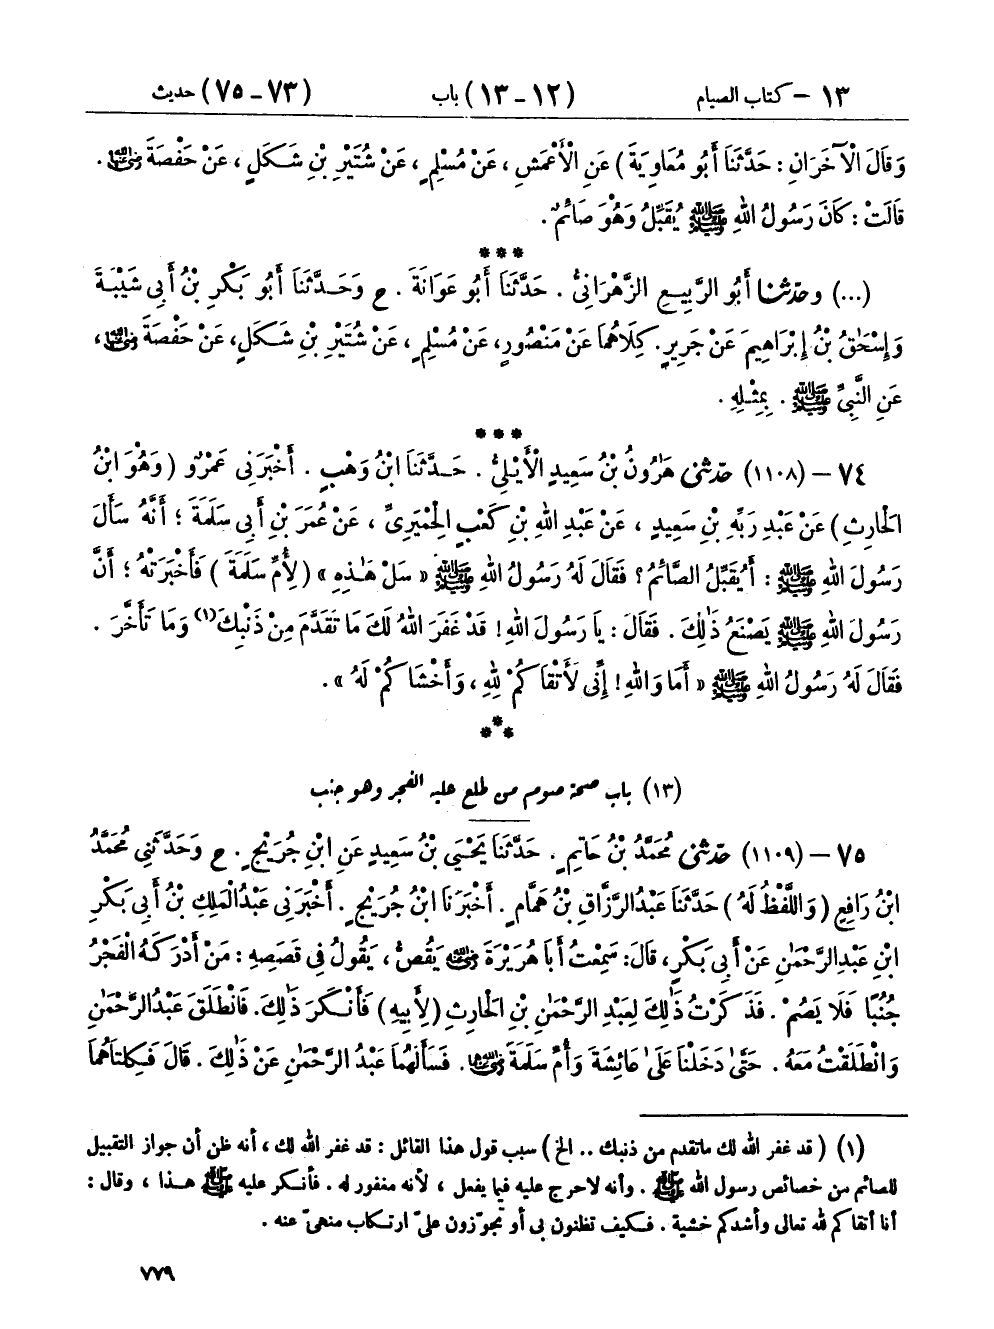 ١٣ – كتاب الصيام (١٢ – ١٣) باب (٧٣ – ٧٥) حديث
وَقَالَ الْآخَرَانِ : حَدَّثَنَا أَبُو مُعَاوِيَةَ ) عَنِ الْأَعْمَشِ ، عَنْ مُسْلِمٍ ، عَنْ شُتَيْرِ بْنِ شَكَلٍ ، عَنْ حَفْصَةَ رضي الله عنها .
قَالَتْ : كَانَ رَسُولُ اللهِ ﷺ يُقَبِّلُ وَهُوَ صَائِمٌ .
***
(...) وحدّثنا أَبُو الرَّبِيعِ الزَّهْرَانِيُّ . حَدَّثَنَا أَبُو عَوَانَةَ . ح وَحَدَّثَنَا أَبُو بَكْرِ بْنُ أَبِي شَيْبَةَ
وَإِسْحَقُ بْنُ إِبْرَاهِيمَ عَنْ جَرِيرٍ . كِلَاهُمَا عَنْ مَنْصُورٍ ، عَنْ مُسْلِمٍ ، عَنْ شُتَيْرِ بْنِ شَكَلٍ ، عَنْ حَفْصَةَ رضي الله عنها ،
عَنِ النَّبِيِّ ﷺ . بِمِثْلِهِ .
***
٧٤ – (١١٠٨) حدّثني هَارُونُ بْنُ سَعِيدٍ الْأَيْلِيُّ . حَدَّثَنَا ابْنُ وَهْبٍ . أَخْبَرَنِي عَمْرٌو ( وَهُوَ ابْنُ
الْحَارِثِ ) عَنْ عَبْدِ رَبِّهِ بْنِ سَعِيدٍ ، عَنْ عَبْدِ اللهِ بْنِ كَعْبٍ الْحِمْيَرِيِّ ، عَنْ عُمَرَ بْنِ أَبِي سَلَمَةَ ؛ أَنَّهُ سَأَلَ
رَسُولَ اللهِ ﷺ : أَيُقَبِّلُ الصَّائِمُ ؟ فَقَالَ لَهُ رَسُولُ اللهِ ﷺ « سَلْ هٰذِهِ » ( لِأُمِّ سَلَمَةَ ) فَأَخْبَرَتْهُ ؛ أَنَّ
رَسُولَ اللهِ ﷺ يَصْنَعُ ذٰلِكَ . فَقَالَ : يَا رَسُولَ اللهِ ! قَدْ غَفَرَ اللهُ لَكَ مَا تَقَدَّمَ مِنْ ذَنْبِكَ (١) وَمَا تَأَخَّرَ .
فَقَالَ لَهُ رَسُولُ اللهِ ﷺ « أَمَا وَاللهِ ! إِنِّي لَأَتْقَاكُمْ لِلهِ ، وَأَخْشَاكُمْ لَهُ » .
***
(١٣) باب صحة صوم من طلع عليه الفجر وهو جنب
٧٥ – (١١٠٩) حدّثني مُحَمَّدُ بْنُ حَاتِمٍ . حَدَّثَنَا يَحْيَى بْنُ سَعِيدٍ عَنِ ابْنِ جُرَيْجٍ . ح وَحَدَّثَنِي مُحَمَّدُ
ابْنُ رَافِعٍ ( وَاللَّفْظُ لَهُ ) حَدَّثَنَا عَبْدُ الرَّزَّاقِ بْنُ هَمَّامٍ . أَخْبَرَنَا ابْنُ جُرَيْجٍ . أَخْبَرَنِي عَبْدُ الْمَلِكِ بْنُ أَبِي بَكْرِ
ابْنِ عَبْدِ الرَّحْمٰنِ عَنْ أَبِي بَكْرٍ ، قَالَ : سَمِعْتُ أَبَا هُرَيْرَةَ رضي الله عنه يَقُصُّ ، يَقُولُ فِي قَصَصِهِ : مَنْ أَدْرَكَهُ الْفَجْرُ
جُنُبًا فَلَا يَصُمْ . فَذَكَرْتُ ذٰلِكَ لِعَبْدِ الرَّحْمٰنِ بْنِ الْحَارِثِ ( لِأَبِيهِ ) فَأَنْكَرَ ذٰلِكَ . فَانْطَلَقَ عَبْدُ الرَّحْمٰنِ
وَانْطَلَقْتُ مَعَهُ . حَتَّى دَخَلْنَا عَلَى عَائِشَةَ وَأُمِّ سَلَمَةَ رضي الله عنهما . فَسَأَلَهُمَا عَبْدُ الرَّحْمٰنِ عَنْ ذٰلِكَ . قَالَ فَكِلْتَاهُمَا
(١) ( قد غفر الله لك ماتقدم من ذنبك .. الخ ) سبب قول هذا القائل : قد غفر الله لك ، أنه ظن أن جواز التقبيل
للصائم من خصائص رسول الله ﷺ . وأنه لاحرج عليه فيما يفعل ، لأنه مغفور له . فأنكر عليه ﷺ هذا ، وقال :
أنا أتقاكم لله تعالى وأشدكم خشية . فكيف تظنون بي أو تجوّزون عليّ ارتكاب منهيّ عنه .
٧٧٩